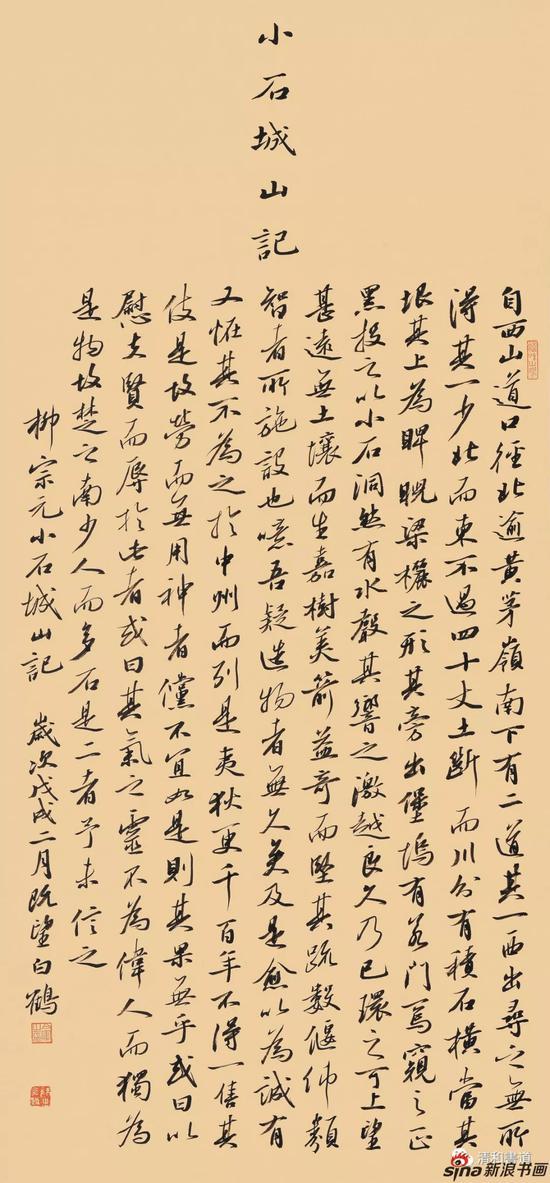 小石城山記
自西山道口徑北逾黃茅嶺南下有二道其一西出尋之無所
得其一少北而東不過四十丈土斷而川分有積石橫當其
垠其上為睥睨梁欐之形其旁出堡塢有若門焉窺之正
黑投之以小石洞然有水聲其響之激越良久乃已環之可上望
甚遠無土壤而生嘉樹美箭益奇而堅其疏數偃仰類
智者所施設也噫吾疑造物者無久矣及是愈以為誠有
又怪其不為之於中州而列是夷狄更千百年不得一售其
伎是故勞而無用神者儻不宜如是則其果無乎或曰以
慰夫賢而辱於此者或曰其氣之靈不為偉人而獨為
是物故楚之南少人而多石是二者予未信之
柳宗元小石城山記 歲次戊戌二月既望白鶴
清和書道
sina新浪书画